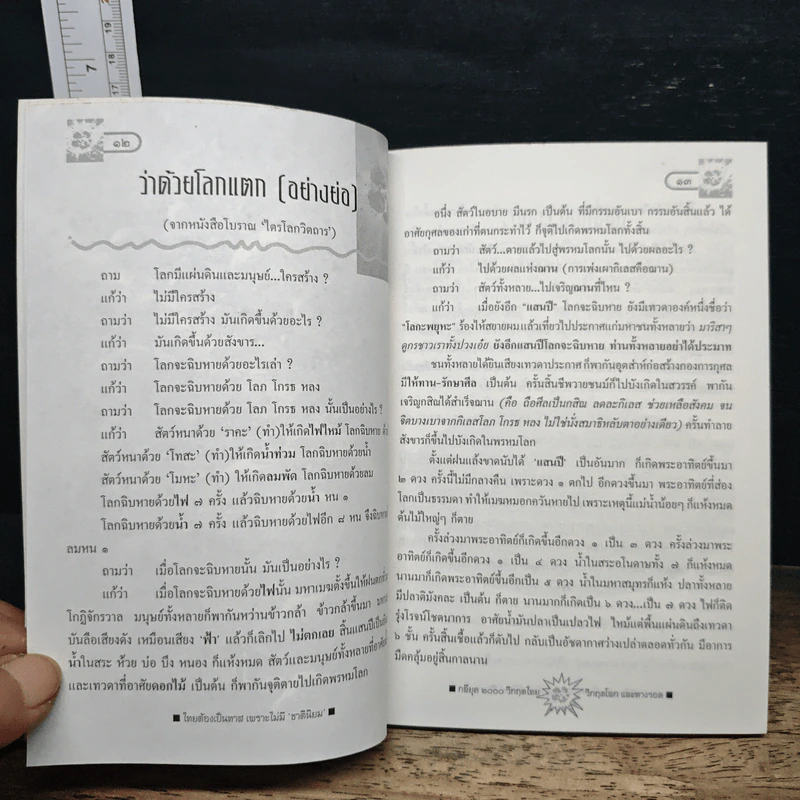 ๑๒
ว่าด้วยโลกแตก (อย่างย่อ)
(จากหนังสือโบราณ 'ไตรโลกวิตถาร')
ถาม โลกมีแผ่นดินและมนุษย์...ใครสร้าง ?
แก้ว่า ไม่มีใครสร้าง
ถามว่า ไม่มีใครสร้าง มันเกิดขึ้นด้วยอะไร ?
แก้ว่า มันเกิดขึ้นด้วยสังขาร...
ถามว่า โลกจะฉิบหายด้วยอะไรเล่า ?
แก้ว่า โลกจะฉิบหายด้วย โลภ โกรธ หลง
ถามว่า โลกจะฉิบหายด้วย โลภ โกรธ หลง นั้นเป็นอย่างไร ?
แก้ว่า สัตว์หนาด้วย 'ราคะ' (ทำ)ให้เกิดไฟไหม้ โลกฉิบหาย
สัตว์หนาด้วย 'โทสะ' (ทำ)ให้เกิดน้ำท่วม โลกฉิบหายด้วยน้ำ
สัตว์หนาด้วย 'โมหะ' (ทำ) ให้เกิดลมพัด โลกฉิบหายด้วยลม
โลกฉิบหายด้วยไฟ ๗ ครั้ง แล้วฉิบหายด้วยน้ำ หน ๑
โลกฉิบหายด้วยน้ำ ๗ ครั้ง แล้วฉิบหายด้วยไฟอีก ๘ หน จึงฉิบหาย
ลมหน ๑
ถามว่า เมื่อโลกจะฉิบหายนั้น มันเป็นอย่างไร ?
แก้ว่า เมื่อโลกจะฉิบหายด้วยไฟนั้น มหาเมฆตั้งขึ้นให้ฝนตก
โกฏิจักรวาล มนุษย์ทั้งหลายก็พากันหว่านข้าวกล้า ข้าวกล้าขึ้นมา
บันลือเสียงดัง เหมือนเสียง 'ฟ้า' แล้วก็เลิกไป ไม่ตกเลย สิ้นแสนปีเป็น
น้ำในสระ ห้วย บ่อ บึง หนอง ก็แห้งหมด สัตว์และมนุษย์ทั้งหลายที่อาศัย
และเทวดาที่อาศัยดอกไม้ เป็นต้น ก็พากันจุติตายไปเกิดพรหมโลก
■ ไทยต้องเป็นทาส เพราะไม่มี 'ชาตินิยม' ■
๑๓
อนึ่ง สัตว์ในอบาย มีนรก เป็นต้น ที่มีกรรมอันเบา กรรมอันสิ้นแล้ว ได้
อาศัยกุศลของเก่าที่ตนกระทำไว้ ก็จุติไปเกิดพรหมโลกทั้งสิ้น
ถามว่า สัตว์...ตายแล้วไปสู่พรหมโลกนั้น ไปด้วยผลอะไร ?
แก้ว่า ไปด้วยผลแห่งฌาน (การเพ่งเผากิเลสคือฌาน)
ถามว่า สัตว์ทั้งหลาย...ไปเจริญฌานที่ไหน ?
แก้ว่า เมื่อยังอีก "แสนปี" โลกจะฉิบหาย ยังมีเทวดาองค์หนึ่งชื่อว่า
"โลกะพยุหะ" ร้องไห้สยายผมแล้วเที่ยวไปประกาศแก่มหาชนทั้งหลายว่า มาริสาๆ
ดูกรชาวเราทั้งปวงเอ๋ย ยังอีกแสนปีโลกจะฉิบหาย ท่านทั้งหลายอย่าได้ประมาท
ชนทั้งหลายได้ยินเสียงเทวดาประกาศ ก็พาอุตส่าห์ก่อสร้างกองการกุศล
มีให้ทาน-รักษาศีล เป็นต้น ครั้นสิ้นชีพวายชนม์ก็ไปบังเกิดในสวรรค์ พากัน
เจริญกสิณได้สำเร็จฌาน (คือ ถือศีลเป็นกสิณ ลดละกิเลส ช่วยเหลือสังคม จน
จิตบางเบาจากกิเลสโลภ โกรธ หลง ไม่ใช่นั่งสมาธิหลับตาอย่างเดียว) ครั้นทำลาย
สังขารก็ขึ้นไปบังเกิดในพรหมโลก
ตั้งแต่ฝนแล้งขาดนับได้ 'แสนปี' เป็นอันมาก ก็เกิดพระอาทิตย์ขึ้นมา
๒ ดวง ครั้งนี้ไม่มีกลางคืน เพราะดวง ๑ ตกไป อีกดวงขึ้นมา พระอาทิตย์ที่ส่อง
โลกเป็นธรรมดา ทำให้เมฆหมอกควันหายไป เพราะเหตุนี้แม่น้ำน้อยๆ ก็แห้งหมด
ต้นไม้ใหญ่ๆ ก็ตาย
ครั้งล่วงมาพระอาทิตย์ก็เกิดขึ้นอีกดวง ๑ เป็น ๓ ดวง ครั้งล่วงมาพระ
อาทิตย์ก็เกิดขึ้นอีกดวง ๑ เป็น ๔ ดวง น้ำในสระอโนดาษทั้ง ๗ ก็แห้งหมด
นานมาก็เกิดพระอาทิตย์ขึ้นอีกเป็น ๕ ดวง น้ำในมหาสมุทรก็แห้ง ปลาทั้งหลาย
มีปลาติมังคละ เป็นต้น ก็ตาย นานมาก็เกิดเป็น ๖ ดวง...เป็น ๗ ดวง ไฟก็ติด
รุ่งโรจน์โชตนาการ อาศัยน้ำมันปลาเป็นเปลวไฟ ไหม้แต่พื้นแผ่นดินถึงเทวดา
๖ ชั้น ครั้นสิ้นเชื้อแล้วก็ดับไป กลับเป็นอัชดากาศว่างเปล่าตลอดทั่วกัน มีอาการ
มืดคลุ้มอยู่สิ้นกาลนาน
■ กลียุค ๒๐๐๐ วิกฤตไทย วิกฤตโลก และทางรอด ■